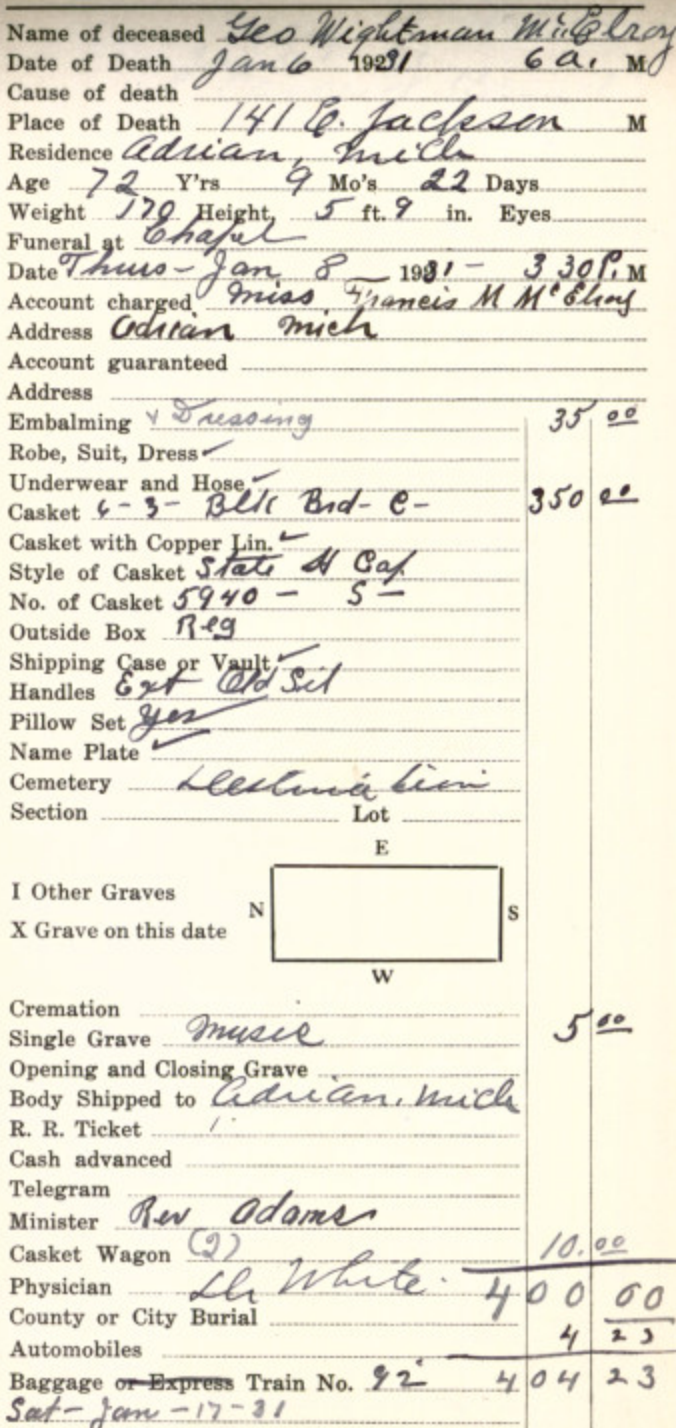 Name of deceased Geo Wightman McElroy
Date of Death Jan 6 1931 6 a. M
Cause of death
Place of Death 141 E. Jackson M
Residence Adrian, Mich
Age 72 Y'rs 9 Mo's 22 Days
Weight 170 Height, 5 ft. 9 in. Eyes
Funeral at Chapel
Date Thurs - Jan 8 1931 - 3 30 P. M
Account charged Miss Francis M McElroy
Address Adrian Mich
Account guaranteed
Address
Embalming & Dressing 35 00
Robe, Suit, Dress ✓
Underwear and Hose ✓
Casket 6-3- Blk Brd- C- 350 00
Casket with Copper Lin. ✓
Style of Casket State H Cap
No. of Casket 5940 - S -
Outside Box Reg
Shipping Case or Vault ✓
Handles Ext Old Sil
Pillow Set Yes
Name Plate ✓
Cemetery
Section Lot
E
I Other Graves
N S
X Grave on this date
W
Cremation
Single Grave Music 5 00
Opening and Closing Grave
Body Shipped to Adrian, Mich
R. R. Ticket
Cash advanced
Telegram
Minister Rev Adams
Casket Wagon (2) 10.00
Physician Dr White 400 00
County or City Burial
4 23
Automobiles
Baggage or Express Train No. 92 404 23
Sat - Jan - 17 - 31